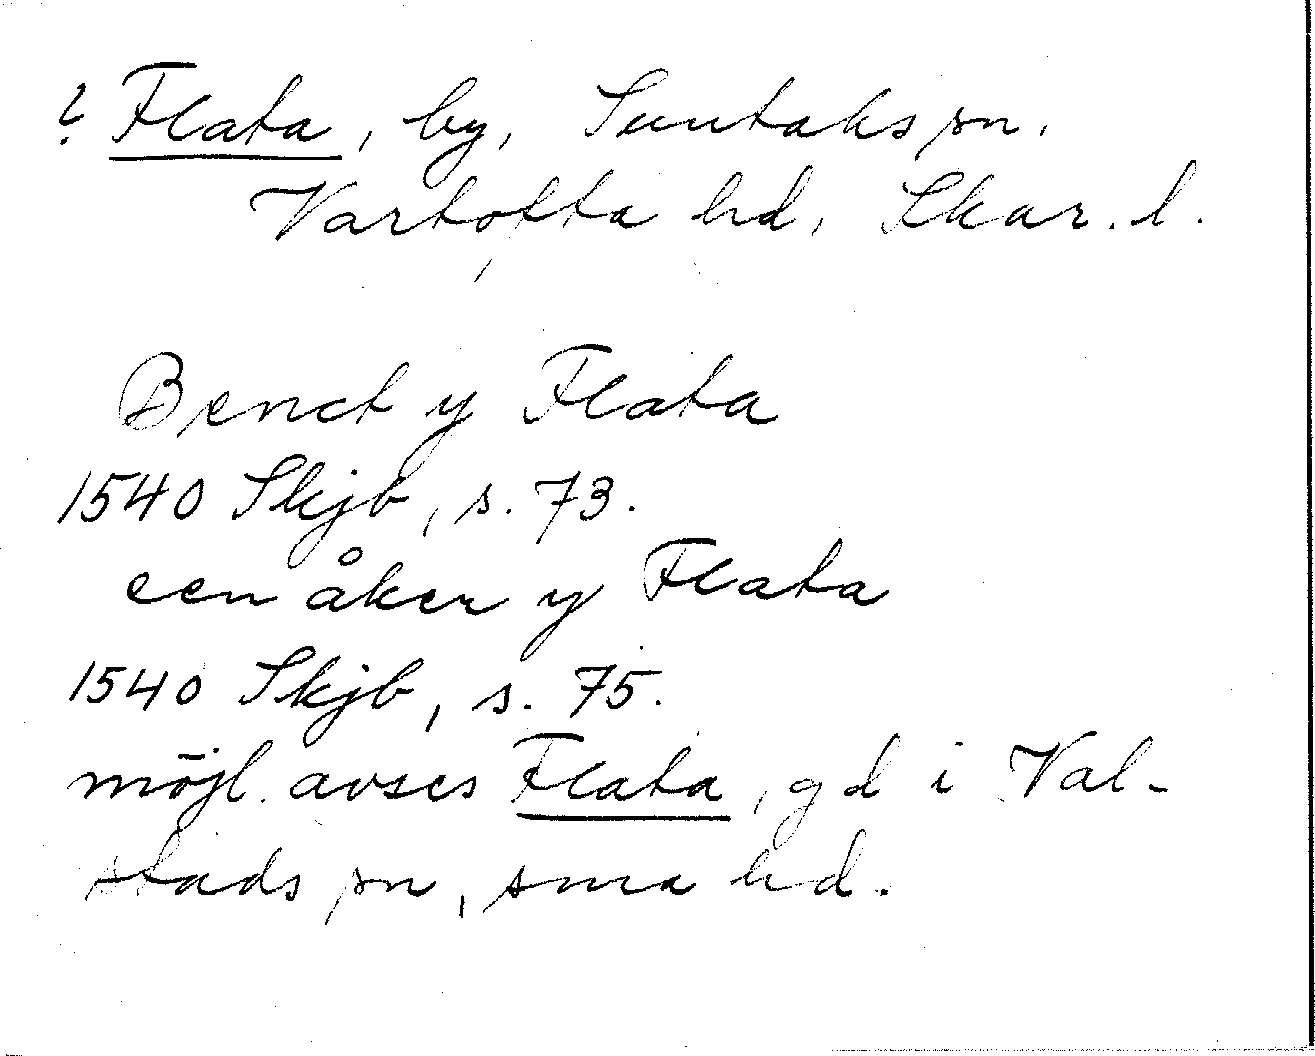 ? Flata, by, Suntaks sn.
Vartofta hd, Skar. l.
Benct y Flata
1540 Skjb, s. 73.
een åker y Flata
1540 Skjb, s. 75.
möjl. avses Flata, gd i Val-
stads sn, sma hd.